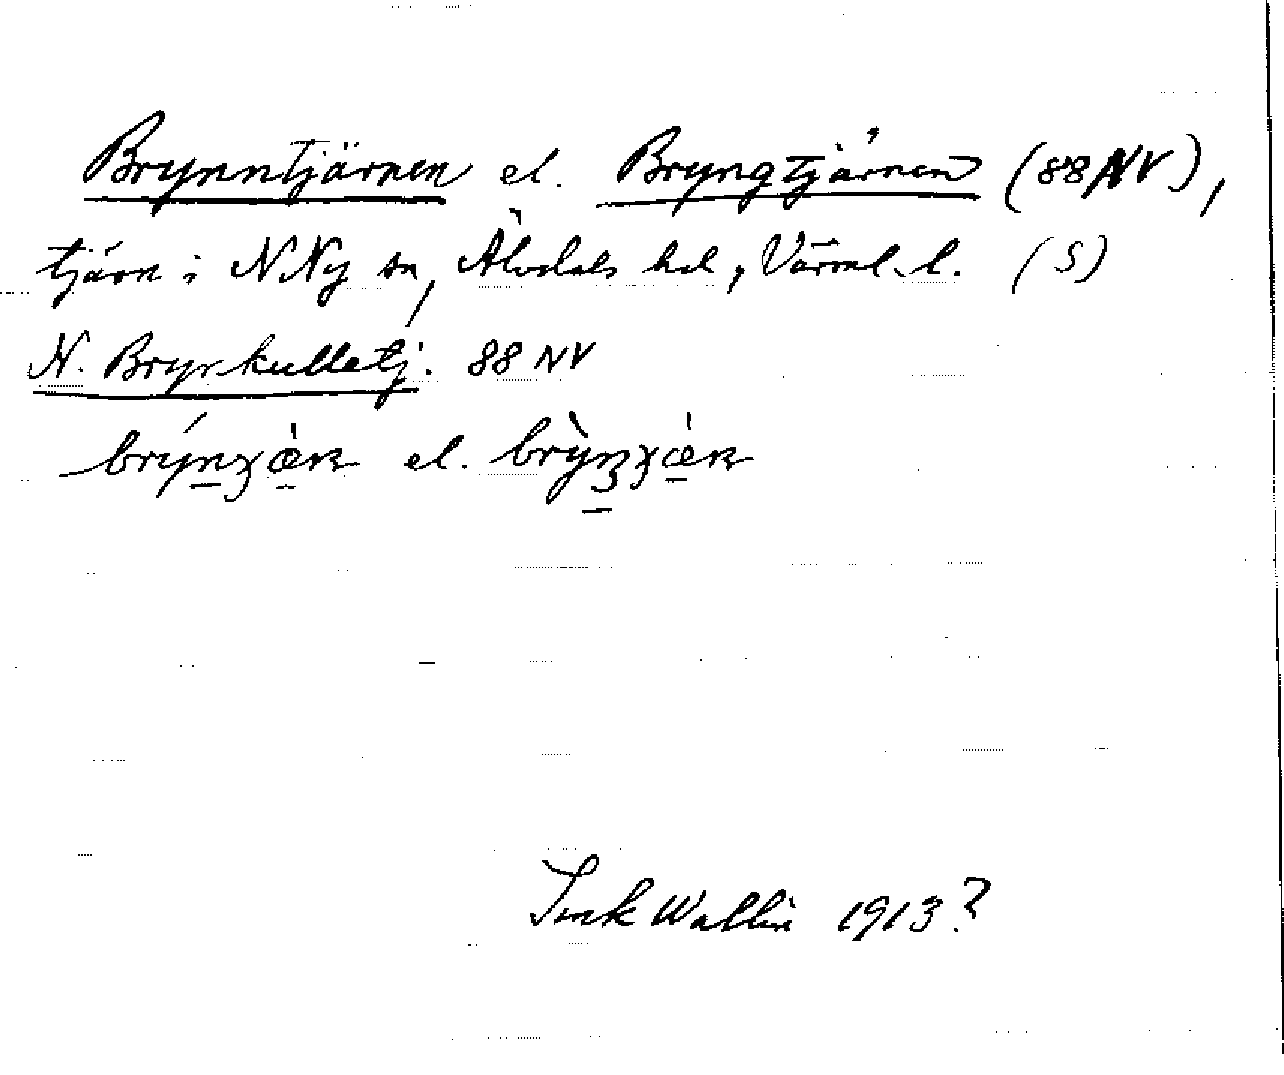 Brynntjärnen el. Bryngtjärnen (88 NV),
tjärn i N Ny sn, Älvdals hd, Värml. l. (S)
N. Bryskulletj. 88 NV
el.
Wallin 1913?